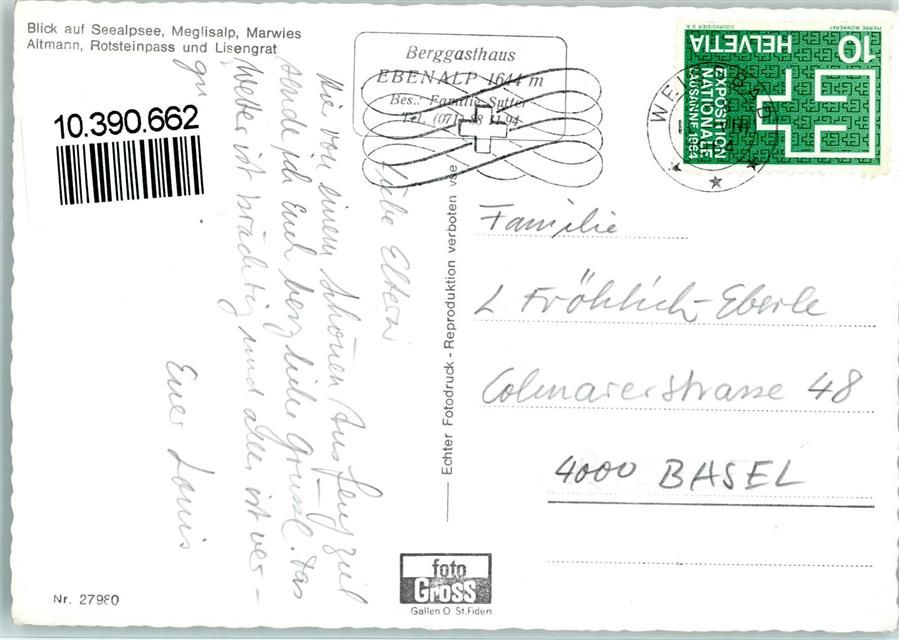 Blick auf Seealpsee, Meglisalp, Marwies
Altmann, Rotsteinpass und Lisengrat
10.390.662
Berggasthaus
EBENALP 1644 m
Bes.: Familie Sutter
Tel. (071) 88 11 94
HELVETIA
10
EXPOSITION
NATIONALE
LAUSANNE 1964
COURVOISIER S.A.
PIERRE MONNERAT
Liebe Eltern
Wie von einem schönen Ausflugsziel
sende ich Euch herzliche Grüsse. Das
Wetter ist prächtig und alles ist ver-
gnügt.
Euer Louis
Echter Fotodruck - Reproduktion verboten vse
Familie
L Fröhlich-Eberle
Colmarerstrasse 48
4000 BASEL
foto
Gross
Gallen O St.Fiden
Nr. 27980